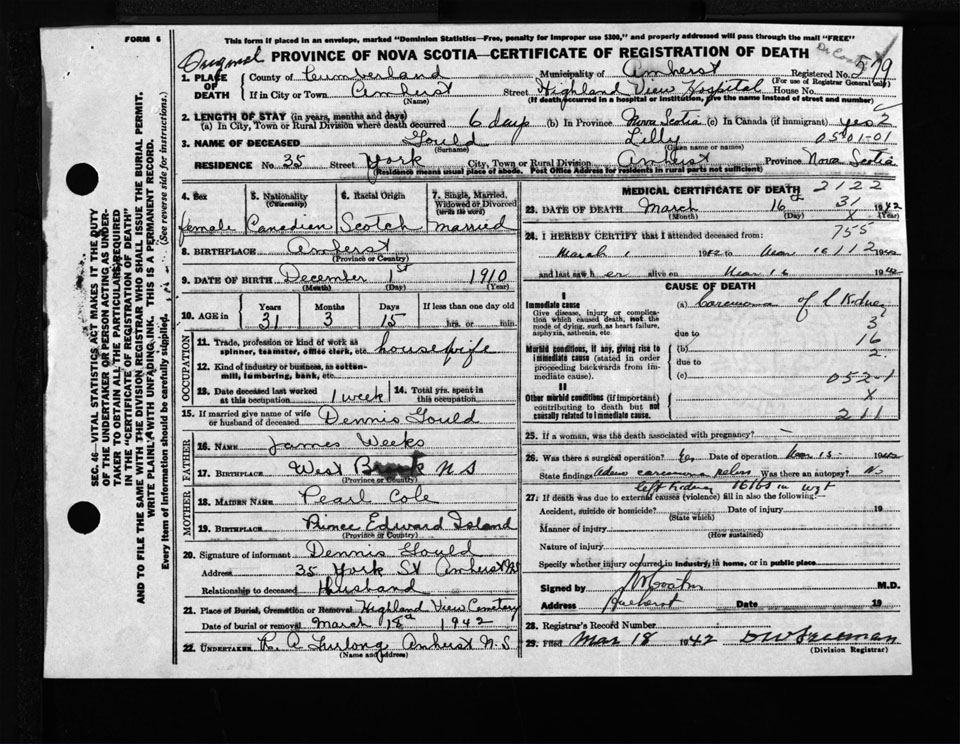 FORM 6
This form if placed in an envelope, marked "Dominion Statistics—Free, penalty for improper use $300," and properly addressed will pass through the mail "FREE"
Original PROVINCE OF NOVA SCOTIA—CERTIFICATE OF REGISTRATION OF DEATH
1. PLACE OF DEATH County of Cumberland Municipality of Amherst Registered No. 579
(For use of Registrar General only)
If in City or Town Amherst Street Highland View Hospital House No.
(Name) (If death occurred in a hospital or institution, give the name instead of street and number)
2. LENGTH OF STAY (in years, months and days)
(a) In City, Town or Rural Division where death occurred 6 days (b) In Province Nova Scotia (c) In Canada (if immigrant) yes 2
3. NAME OF DECEASED Gould Lilly 05-01-01
(Surname) (Given name or names)
RESIDENCE No. 35 Street York City, Town or Rural Division Amherst Province Nova Scotia
(Residence means usual place of abode. Post Office Address for residents in rural parts not sufficient)
4. Sex female
5. Nationality (Citizenship) Canadian
6. Racial Origin Scotch
7. Single, Married, Widowed or Divorced (write the word) married
8. BIRTHPLACE Amherst
(Province or Country)
9. DATE OF BIRTH December 1st 1910
(Month) (Day) (Year)
10. AGE in Years 31 Months 3 Days 15 If less than one day old hrs. or min.
OCCUPATION
11. Trade, profession or kind of work as spinner, teamster, office clerk, etc. housewife
12. Kind of industry or business, as cotton-mill, lumbering, bank, etc.
13. Date deceased last worked at this occupation 1 week
14. Total yrs. spent in this occupation
15. If married give name of wife or husband of deceased Dennis Gould
FATHER
16. NAME James Weeks
17. BIRTHPLACE West Brook N S
(Province or Country)
MOTHER
18. MAIDEN NAME Pearl Cole
19. BIRTHPLACE Prince Edward Island
(Province or Country)
20. Signature of informant Dennis Gould
Address 35 York St Amherst NS
Relationship to deceased Husband
21. Place of Burial, Cremation or Removal Highland View Cemetery
Date of burial or removal March 18th 1942
22. UNDERTAKER R. A. Furlong Amherst N.S
(Name and address)
MEDICAL CERTIFICATE OF DEATH 2122
23. DATE OF DEATH March 16 31 1942
(Month) (Day) X (Year)
24. I HEREBY CERTIFY that I attended deceased from: 755
March 1 1942 to Mar 16 112 1942
and last saw her alive on Mar 16 1942
CAUSE OF DEATH
I
Immediate cause (a) Carcinoma of L Kidney
Give disease, injury or complication which caused death, not the mode of dying, such as heart failure, asphyxia, asthenia, etc.
3
due to
16
Morbid conditions, if any, giving rise to immediate cause (stated in order proceeding backwards from immediate cause).
(b)
2
due to
(c) 052-1
II
Other morbid conditions (if important) contributing to death but not causally related to immediate cause.
X
211
25. If a woman, was the death associated with pregnancy? —
26. Was there a surgical operation? Yes Date of operation Mar 15 1942
State findings Adeno carcinoma Was there an autopsy? No
left kidney in wgt
27. If death was due to external causes (violence) fill in also the following:—
Accident, suicide or homicide? Date of injury 19
(State which)
Manner of injury
(How sustained)
Nature of injury
Specify whether injury occurred in industry, in home, or in public place
Signed by M.D.
Address Amherst Date 19
28. Registrar's Record Number
29. Filed Mar 18 1942 D W Freeman
(Division Registrar)
SEC. 46—VITAL STATISTICS ACT MAKES IT THE DUTY
OF THE UNDERTAKER OR PERSON ACTING AS UNDER-
TAKER TO OBTAIN ALL THE PARTICULARS REQUIRED
IN THE "CERTIFICATE OF REGISTRATION OF DEATH"
AND TO FILE THE SAME WITH THE DIVISION REGISTRAR WHO SHALL ISSUE THE BURIAL PERMIT.
WRITE PLAINLY, WITH UNFADING INK. THIS IS A PERMANENT RECORD.
Every item of information should be carefully supplied. (See reverse side for instructions.)